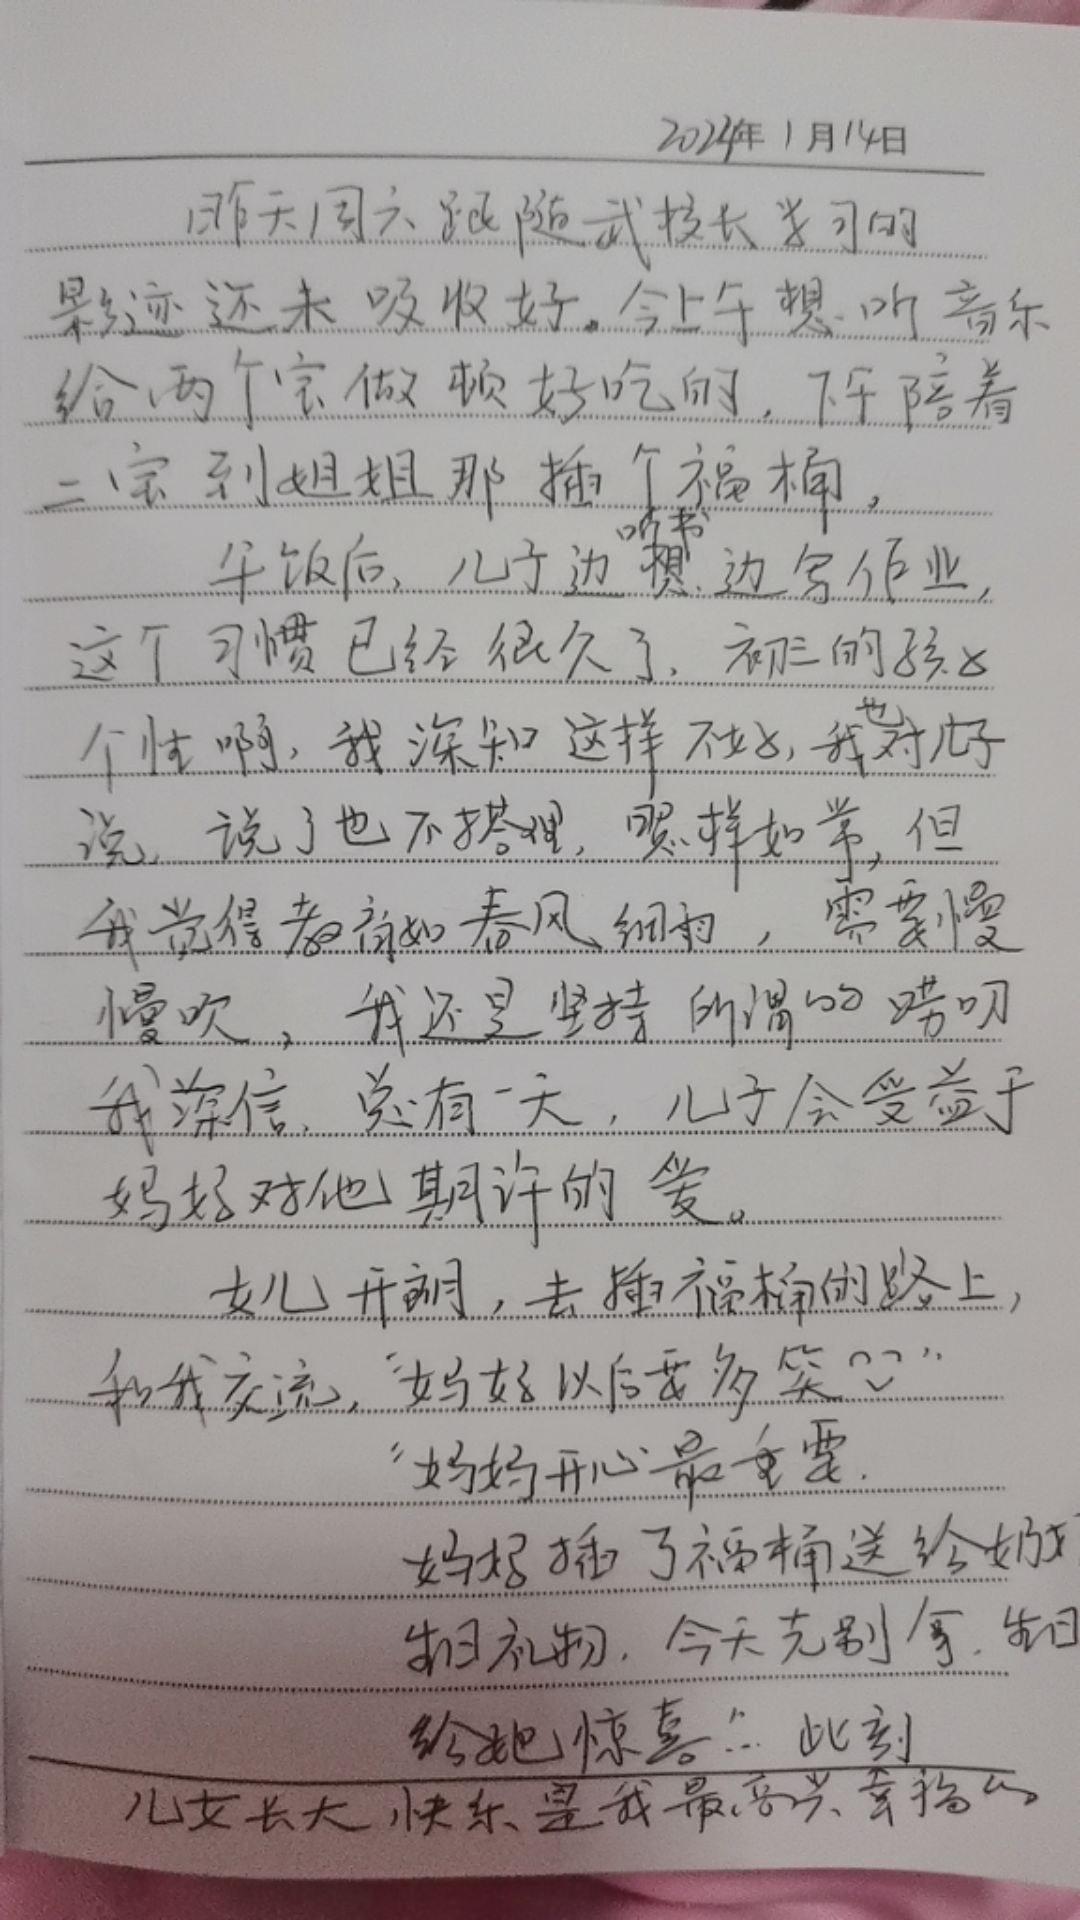 2024年1月14日
昨天周六跟随武校长学习的
影迹还未吸收好。今上午想听音乐
给两个宝做顿好吃的，下午陪着
二宝到姐姐那插个福桶，
午饭后，儿子边听书边写作业，
这个习惯已经很久了，初三的孩子
个性啊，我深知这样不好，我也对儿子
说，说了也不搭理，照样如常，但
我觉得教育如春风细雨，需要慢
慢吹，我还是坚持所谓的唠叨
我深信，总有一天，儿子会受益于
妈妈对他期许的爱。
女儿开朗，去插福桶的路上，
和我交流，“妈妈以后要多笑”
“妈妈开心最重要.
妈妈插了福桶送给奶奶
生日礼物，今天先别拿，生日
给她惊喜 此刻
儿女长大，快乐，是我最高兴、幸福的